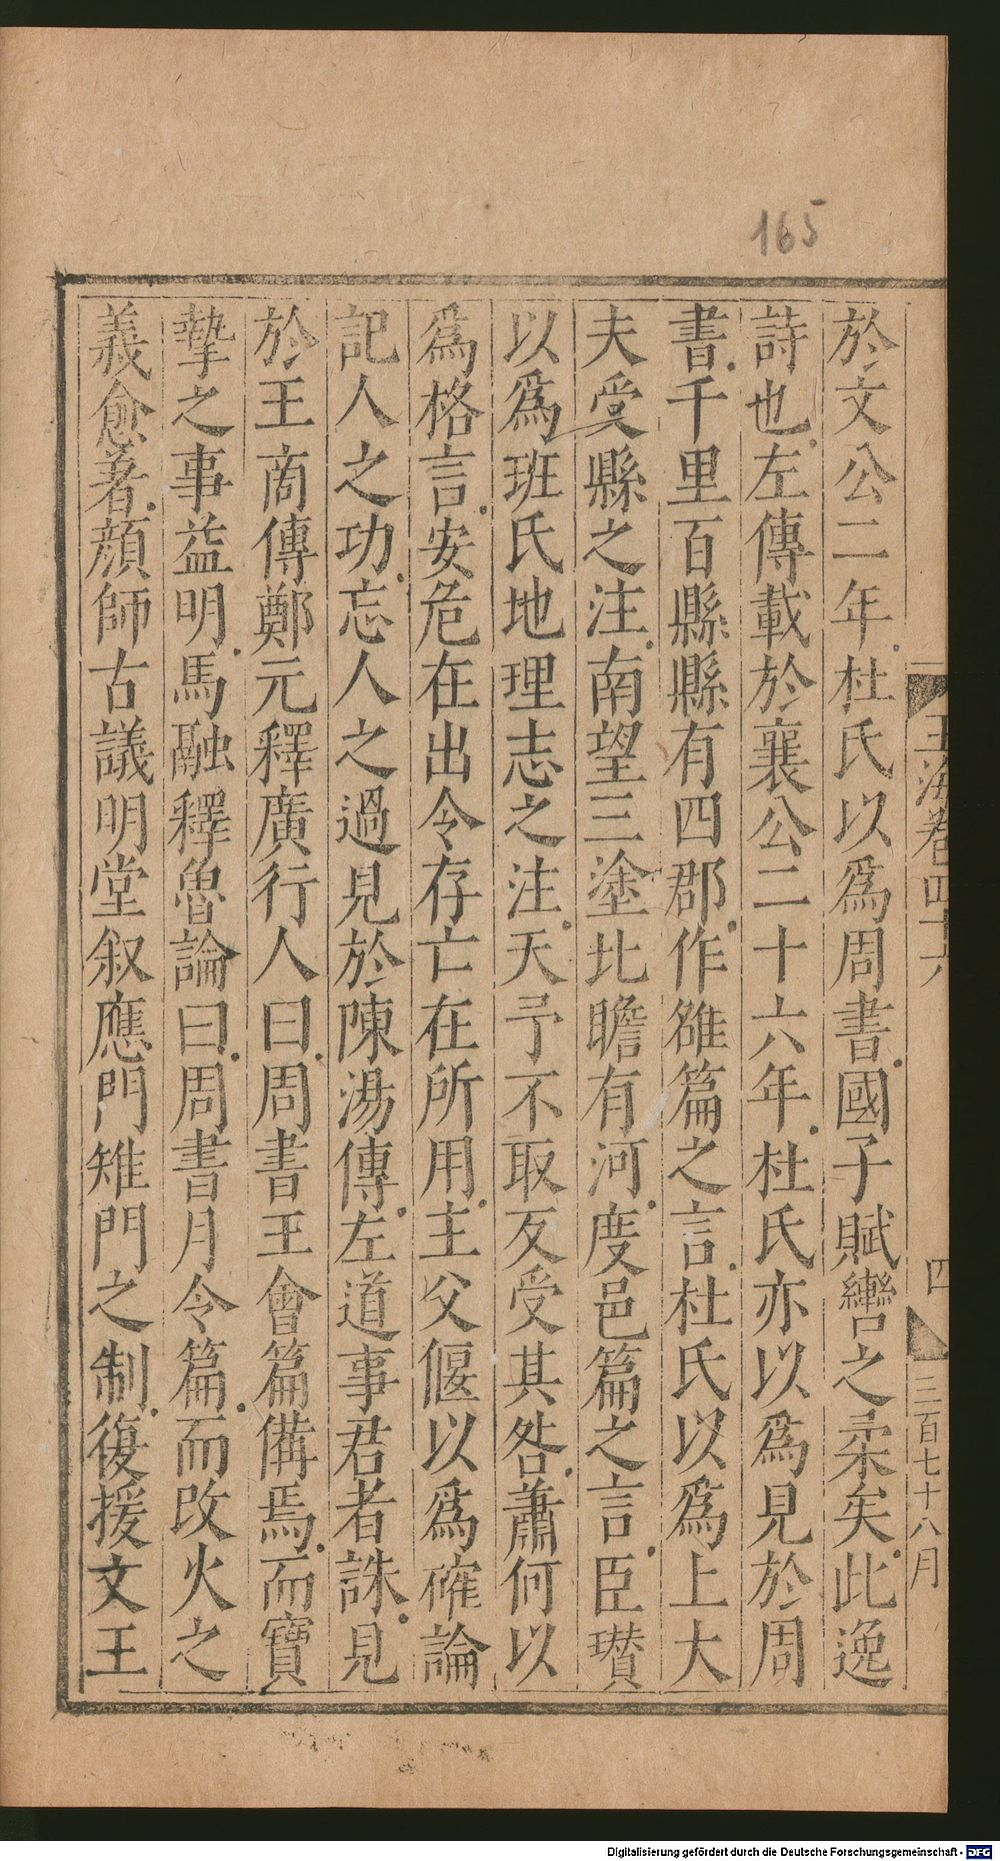 165
玉海卷四十六
四
三百七十八月
於文公二年杜氏以爲周書國子賦轡之柔矣此逸
詩也左傳載於襄公二十六年杜氏亦以爲見於周
書千里百縣縣有四郡作雒篇之言杜氏以爲上大
夫受縣之注南望三塗北瞻有河度邑篇之言臣瓉
以爲班氏地理志之注天予不取反受其咎蕭何以
爲格言安危在出令存亡在所用主父偃以爲確論
記人之功忘人之過見於陳湯傳左道事君者誅見
於王商傳鄭元釋廣行人曰周書王會篇備焉而寶
摯之事益明馬融釋魯論曰周書月令篇而改火之
義愈著顔師古議明堂叙應門雉門之制復援文王
Digitalisierung gefördert durch die Deutsche Forschungsgemeinschaft - DFG